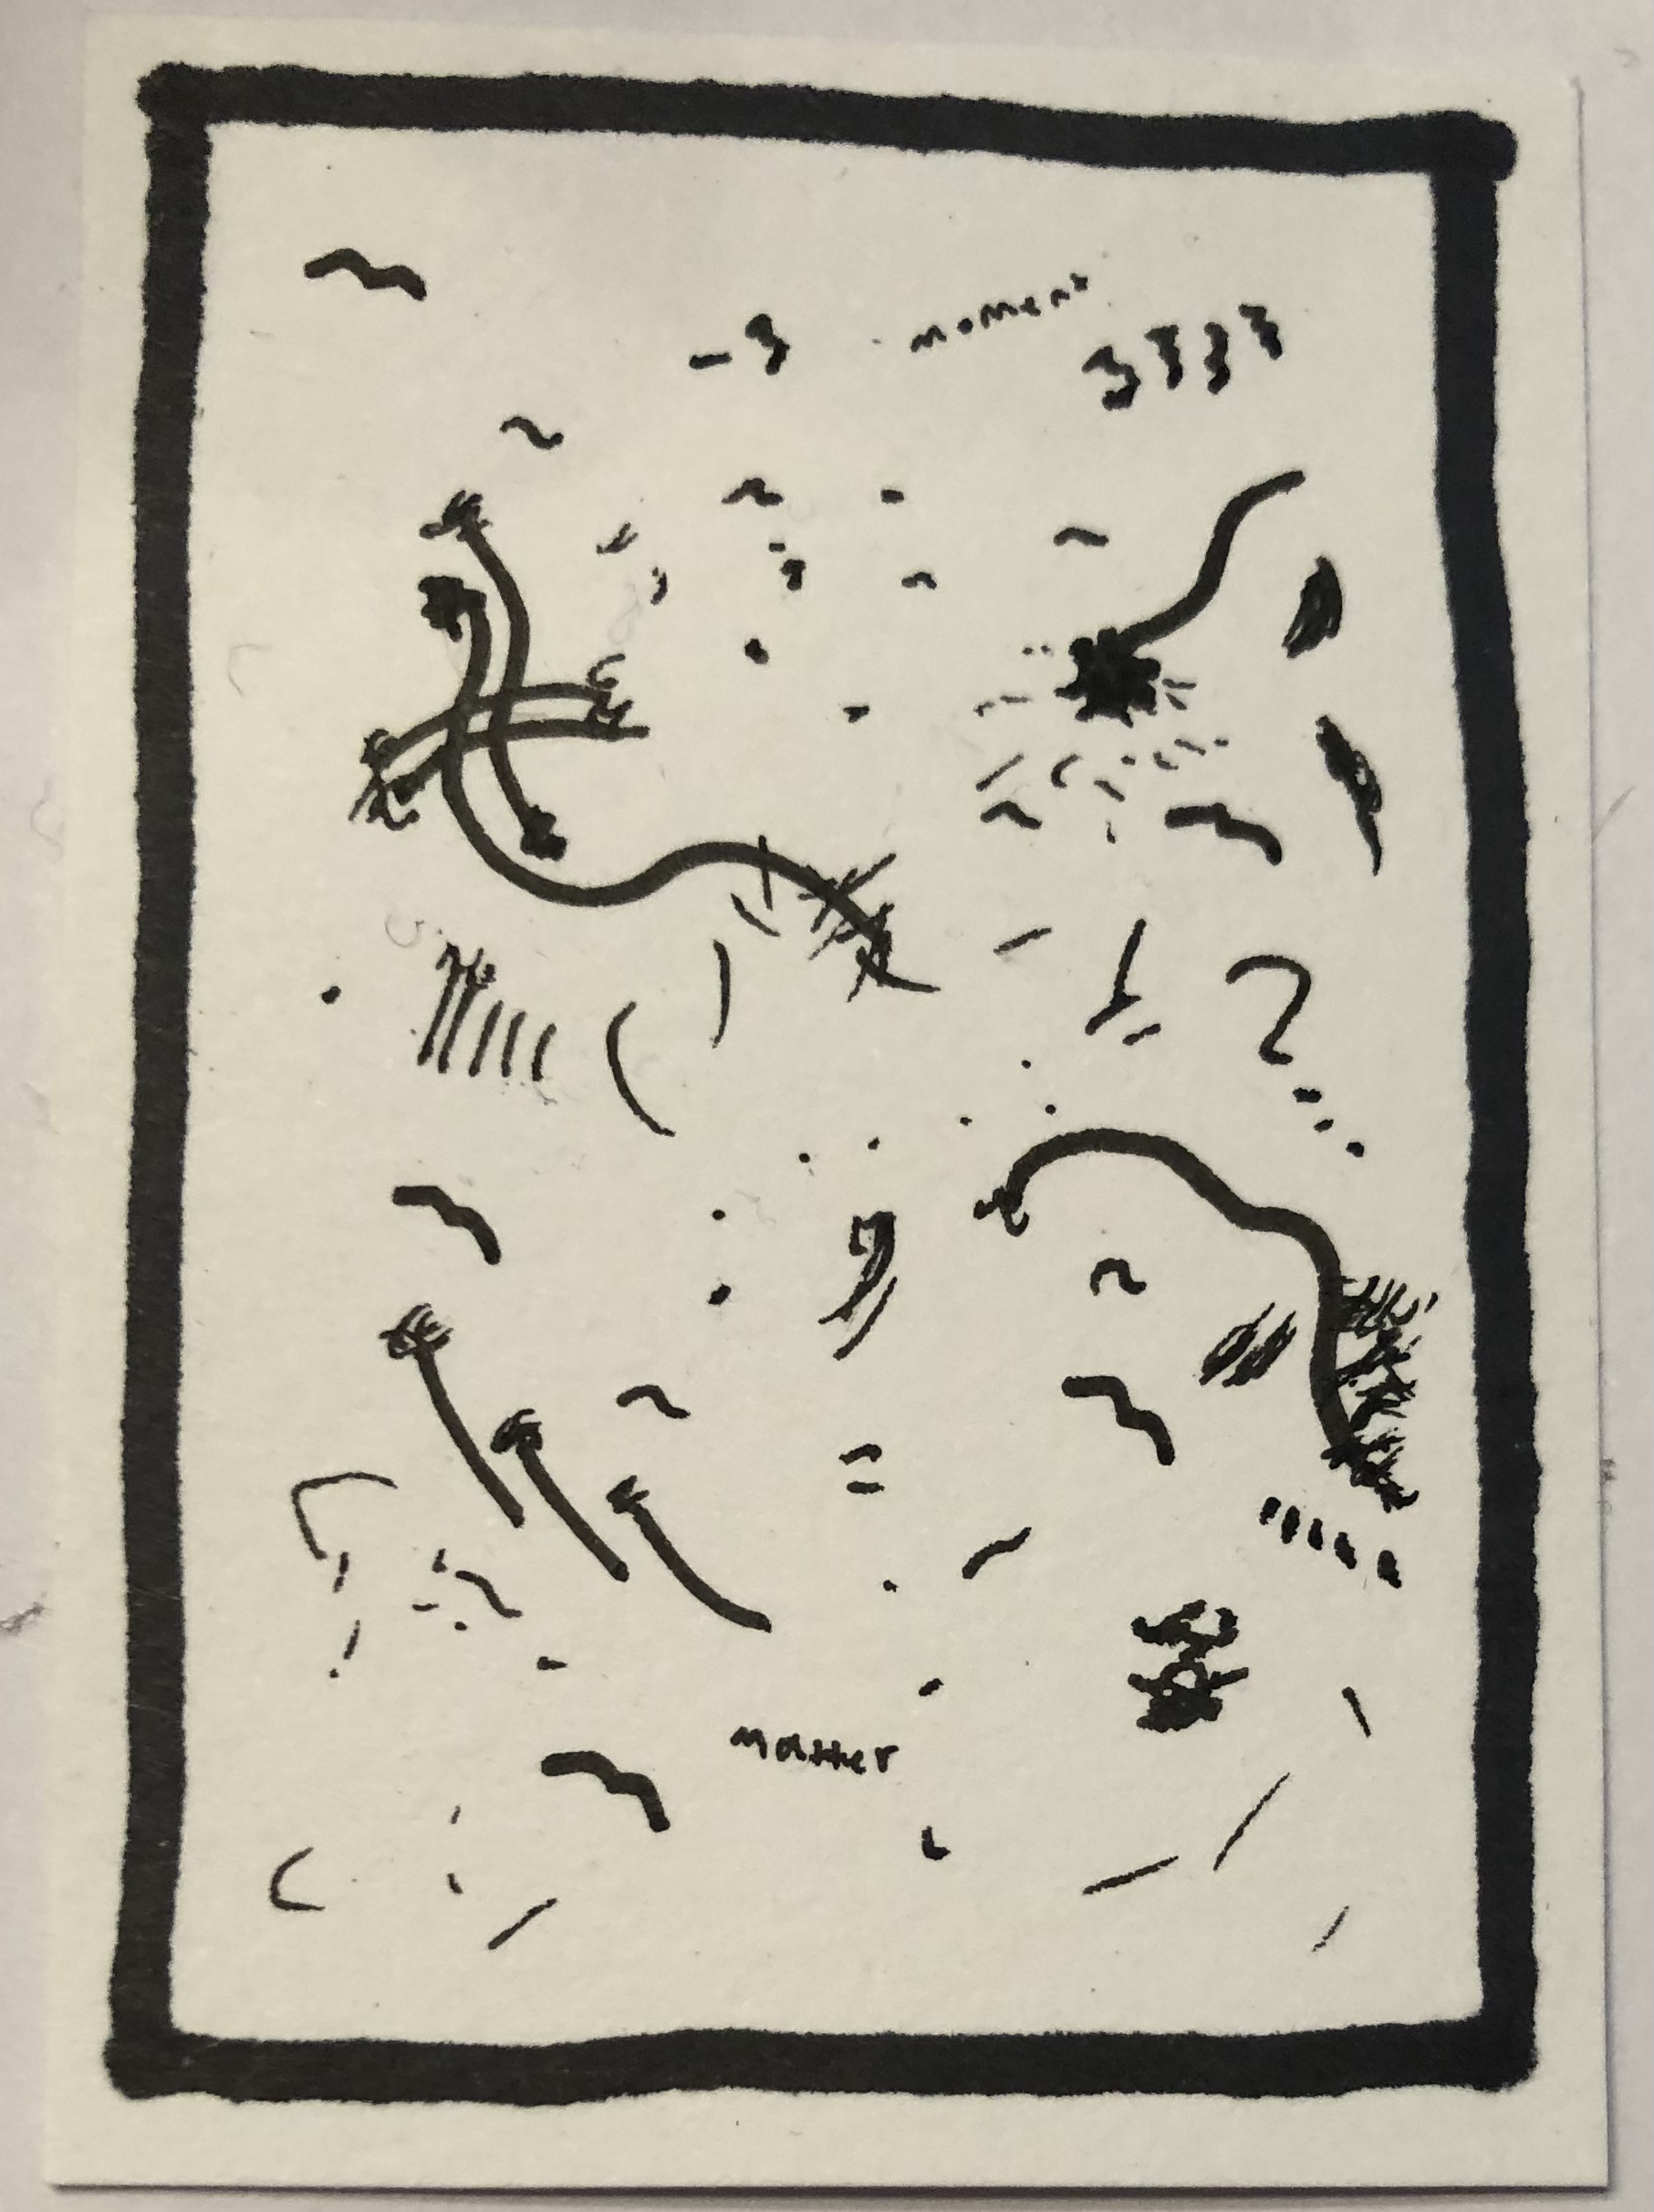 moment
matter